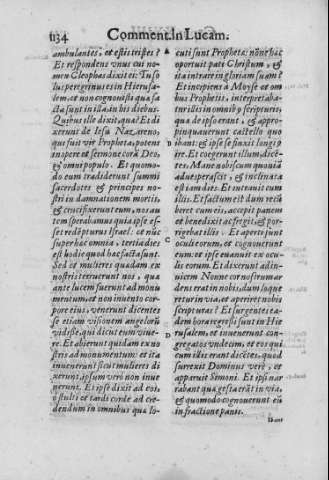 1134 Comment. In Lucam.
ambulantes, et estis tristes?
Et respondens unus cui no-
men Cleophas dixit ei: Tu so
lus peregrinus es in Hierusa-
lem, et non cognouisti quæ fa
cta sunt in illa in his diebus?
Quibus ille dixit quæ? Et di
xerunt de Iesu Nazareno,
qui fuit vir Propheta, potens
in opere et sermone corā Deo,
& omni populo. Et quomo-
do eum tradiderunt summi
sacerdotes & principes no-
stri in damnationem mortis,
& crucifixerunt eum, nos au
tem sperabamus quia ipse es-
set redēpturus Israel. et nūc
super hæc omnia, tertia dies
est hodie quod hæc facta sunt.
Sed et mulieres quædam ex
nostris terruerunt nos, quæ
ante lucem fuerunt ad monu
mentum, et non inuento cor-
pore eius, venerunt dicentes
se etiam visionem angelorū
vidisse, qui dicūt eum viue-
re. Et abierunt quidam ex no
stris ad monumentum: et ita
inuenerunt sicut mulieres di
xerunt, ipsum verò non inue
nerunt. Et ipse dixit ad eos,
ò stulti et tardi corde ad cre-
dendum in omnibus quæ lo-
cuti sunt Prophetæ: nōne hæc
oportuit pati Christum, &
ita intrare in gloriam suam?
Et incipiens à Moyse et om
nibus Prophetis, interpretaba-
tur illis in omnibꝰ scripturis,
quæ de ipso erant, & appro-
pinquauerunt castello quo
ibant: & ipse se finxit longiꝰ
ire. Et coegerunt illum dicē-
tes. Mane nobiscum quoniā
aduesperascit, & inclinata
est iam dies. Et intrauit cum
illis. Et factum est dum recū
beret cum eis, accepit panem
et benedixit ac fregit, & por-
rigebat illis. Et aperti sunt
oculi eorum, et cognouerunt
eum: et ipse euanuit ex ocu-
lis eorum. Et dixerunt ad in-
uicem Nonne cor nostrum ar
dens erat in nobis, dum loque
retur in via, et aperiret nobis
scripturas? Et surgentes ea-
dem hora regressi sunt in Hie
rusalem, et inuenerunt con-
gregatos vndecim, et eos qui
cum illis erant dicētes, quod
surrexit Dominus verè, et
apparuit Simoni. Et ipsi nar
rabant quæ gesta erāt in via,
& quomodo cognouerunt eū
in fractione panis.
C
D